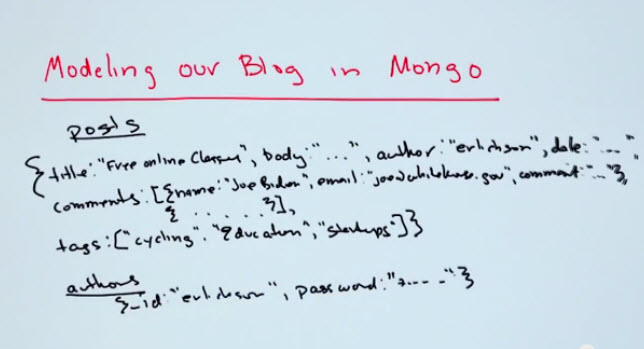 Modeling our Blog in Mongo
posts
{title:"Free online Classes", body:"...", author:"erlichson", date:"..."
comments:[{name:"Joe Biden", email:"joe@whitehouse.gov", comment:"..."},
{ ..... }],
tags:["cycling","Education","startups"]}
authors
{_id:"erlichson", password:"....."}